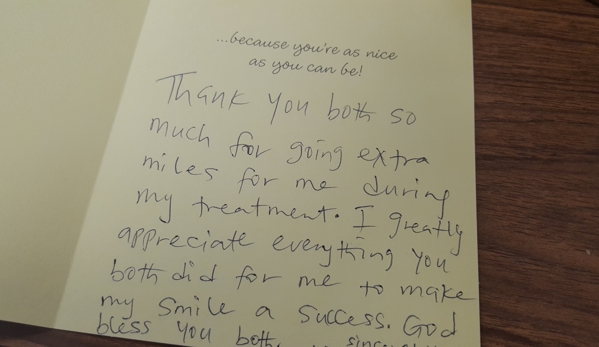 ...because you're as nice
as you can be!
Thank you both so
much for going extra
miles for me during
my treatment. I greatly
appreciate everything you
both did for me to make
my smile a success. God
bless you both.